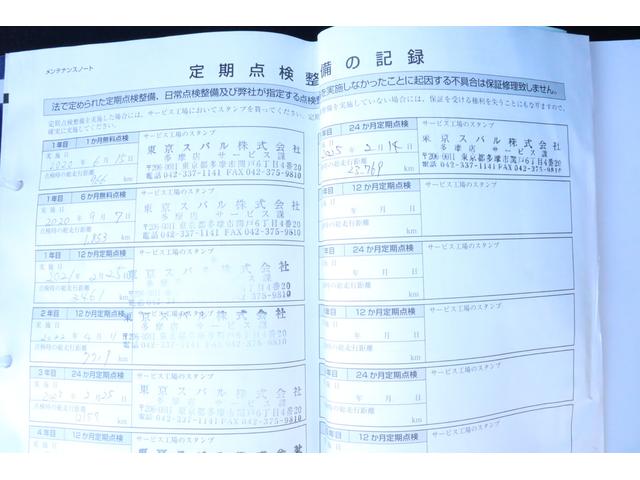 メンテナンスノート
定期点検整備の記録
法で定められた定期点検整備、日常点検及び弊社が指定する点検整
を実施しなかったことに起因する不具合は保証修理致しません。
定期点検整備を実施した場合には、サービス工場においてスタンプを貰ってください。
整備を実施していない場合には、保証を受ける権利を失うことにもなりますので、
確実に実施してください。
1年目 1か月無料点検 サービス工場のスタンプ
実施日 6月15日
点検時の総走行距離 966 km
東京スバル株式会社
多摩店 サービス課
〒206-0011 東京都多摩市関戸6丁目4番20
電話042-337-1141 FAX 042-375-9810
1年目 6か月無料点検 サービス工場のスタンプ
実施日 2020年9月7日
点検時の総走行距離 1,853 km
東京スバル株式会社
多摩店 サービス課
〒206-0011 東京都多摩市関戸6丁目4番20
電話042-337-1141 FAX 042-375-9810
1年目 12か月定期点検 サービス工場のスタンプ
実施日 2021年2月25日
点検時の総走行距離 3461 km
東京スバル株式会社
2年目 12か月定期点検 サービス工場のスタンプ
実施日 2022年4月
点検時の総走行距離 km
多摩店 サービス課
〒206-0011 東京都多摩市関戸6丁目4番20
電話042-337-1141 FAX 042-375-9810
3年目 24か月定期点検 サービス工場のスタンプ
実施日 2月25日
点検時の総走行距離 km
東京スバル株式会社
多摩店 サービス課
〒206-0011 東京都多摩市関戸6丁目4番20
電話042-337-1141 FAX 042-375-9810
4年目 12か月定期点検 サービス工場のスタンプ
東京スバル株式会社
年目 24か月定期点検 サービス工場のスタンプ
実施日 2025年2月14日
点検時の総走行距離 23,769 km
東京スバル株式会社
多摩店 サービス課
〒206-0011 東京都多摩市関戸6丁目4番20
電話042-337-1141 FAX 042-375-9810
年目 12か月定期点検 サービス工場のスタンプ
実施日 年 月 日
点検時の総走行距離 km
年目 24か月定期点検 サービス工場のスタンプ
実施日 年 月 日
点検時の総走行距離 km
年目 12か月定期点検 サービス工場のスタンプ
実施日 年 月 日
点検時の総走行距離 km
年目 24か月定期点検 サービス工場のスタンプ
実施日 年 月 日
点検時の総走行距離 km
年目 12か月定期点検 サービス工場のスタンプ